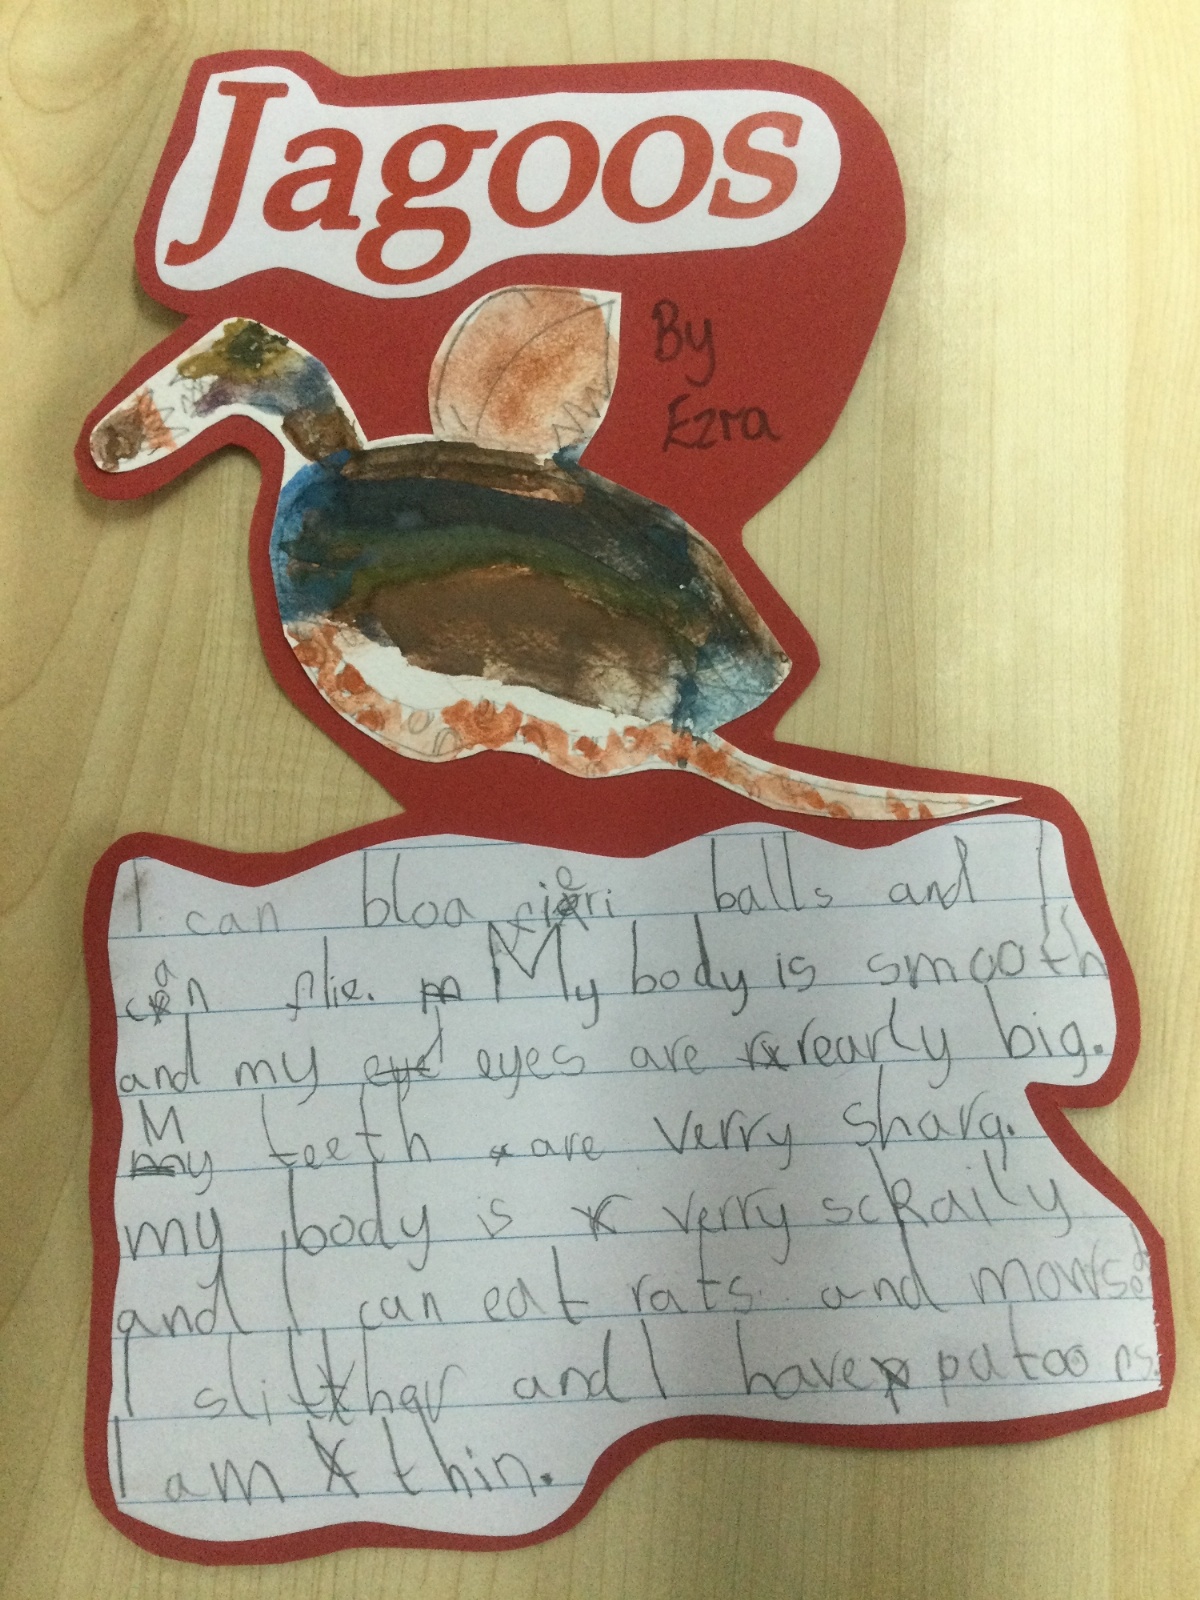 Jagoos
By
Ezra
I can bloa fieri balls and I
can flie. My body is smooth
and my eyes are rearly big.
My teeth are verry sharg.
my body is verry sckaily
and I can eat rats and mowse.
I slithar and I have patoons.
I am thin.